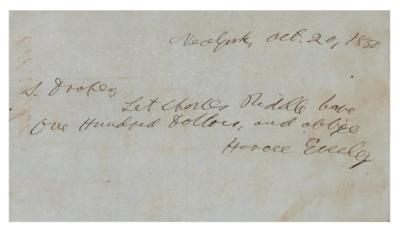 New York, Oct. 20, 1850
S. Draper,
Let Charles Riddle have
One Hundred Dollars, and oblige
Horace Greeley